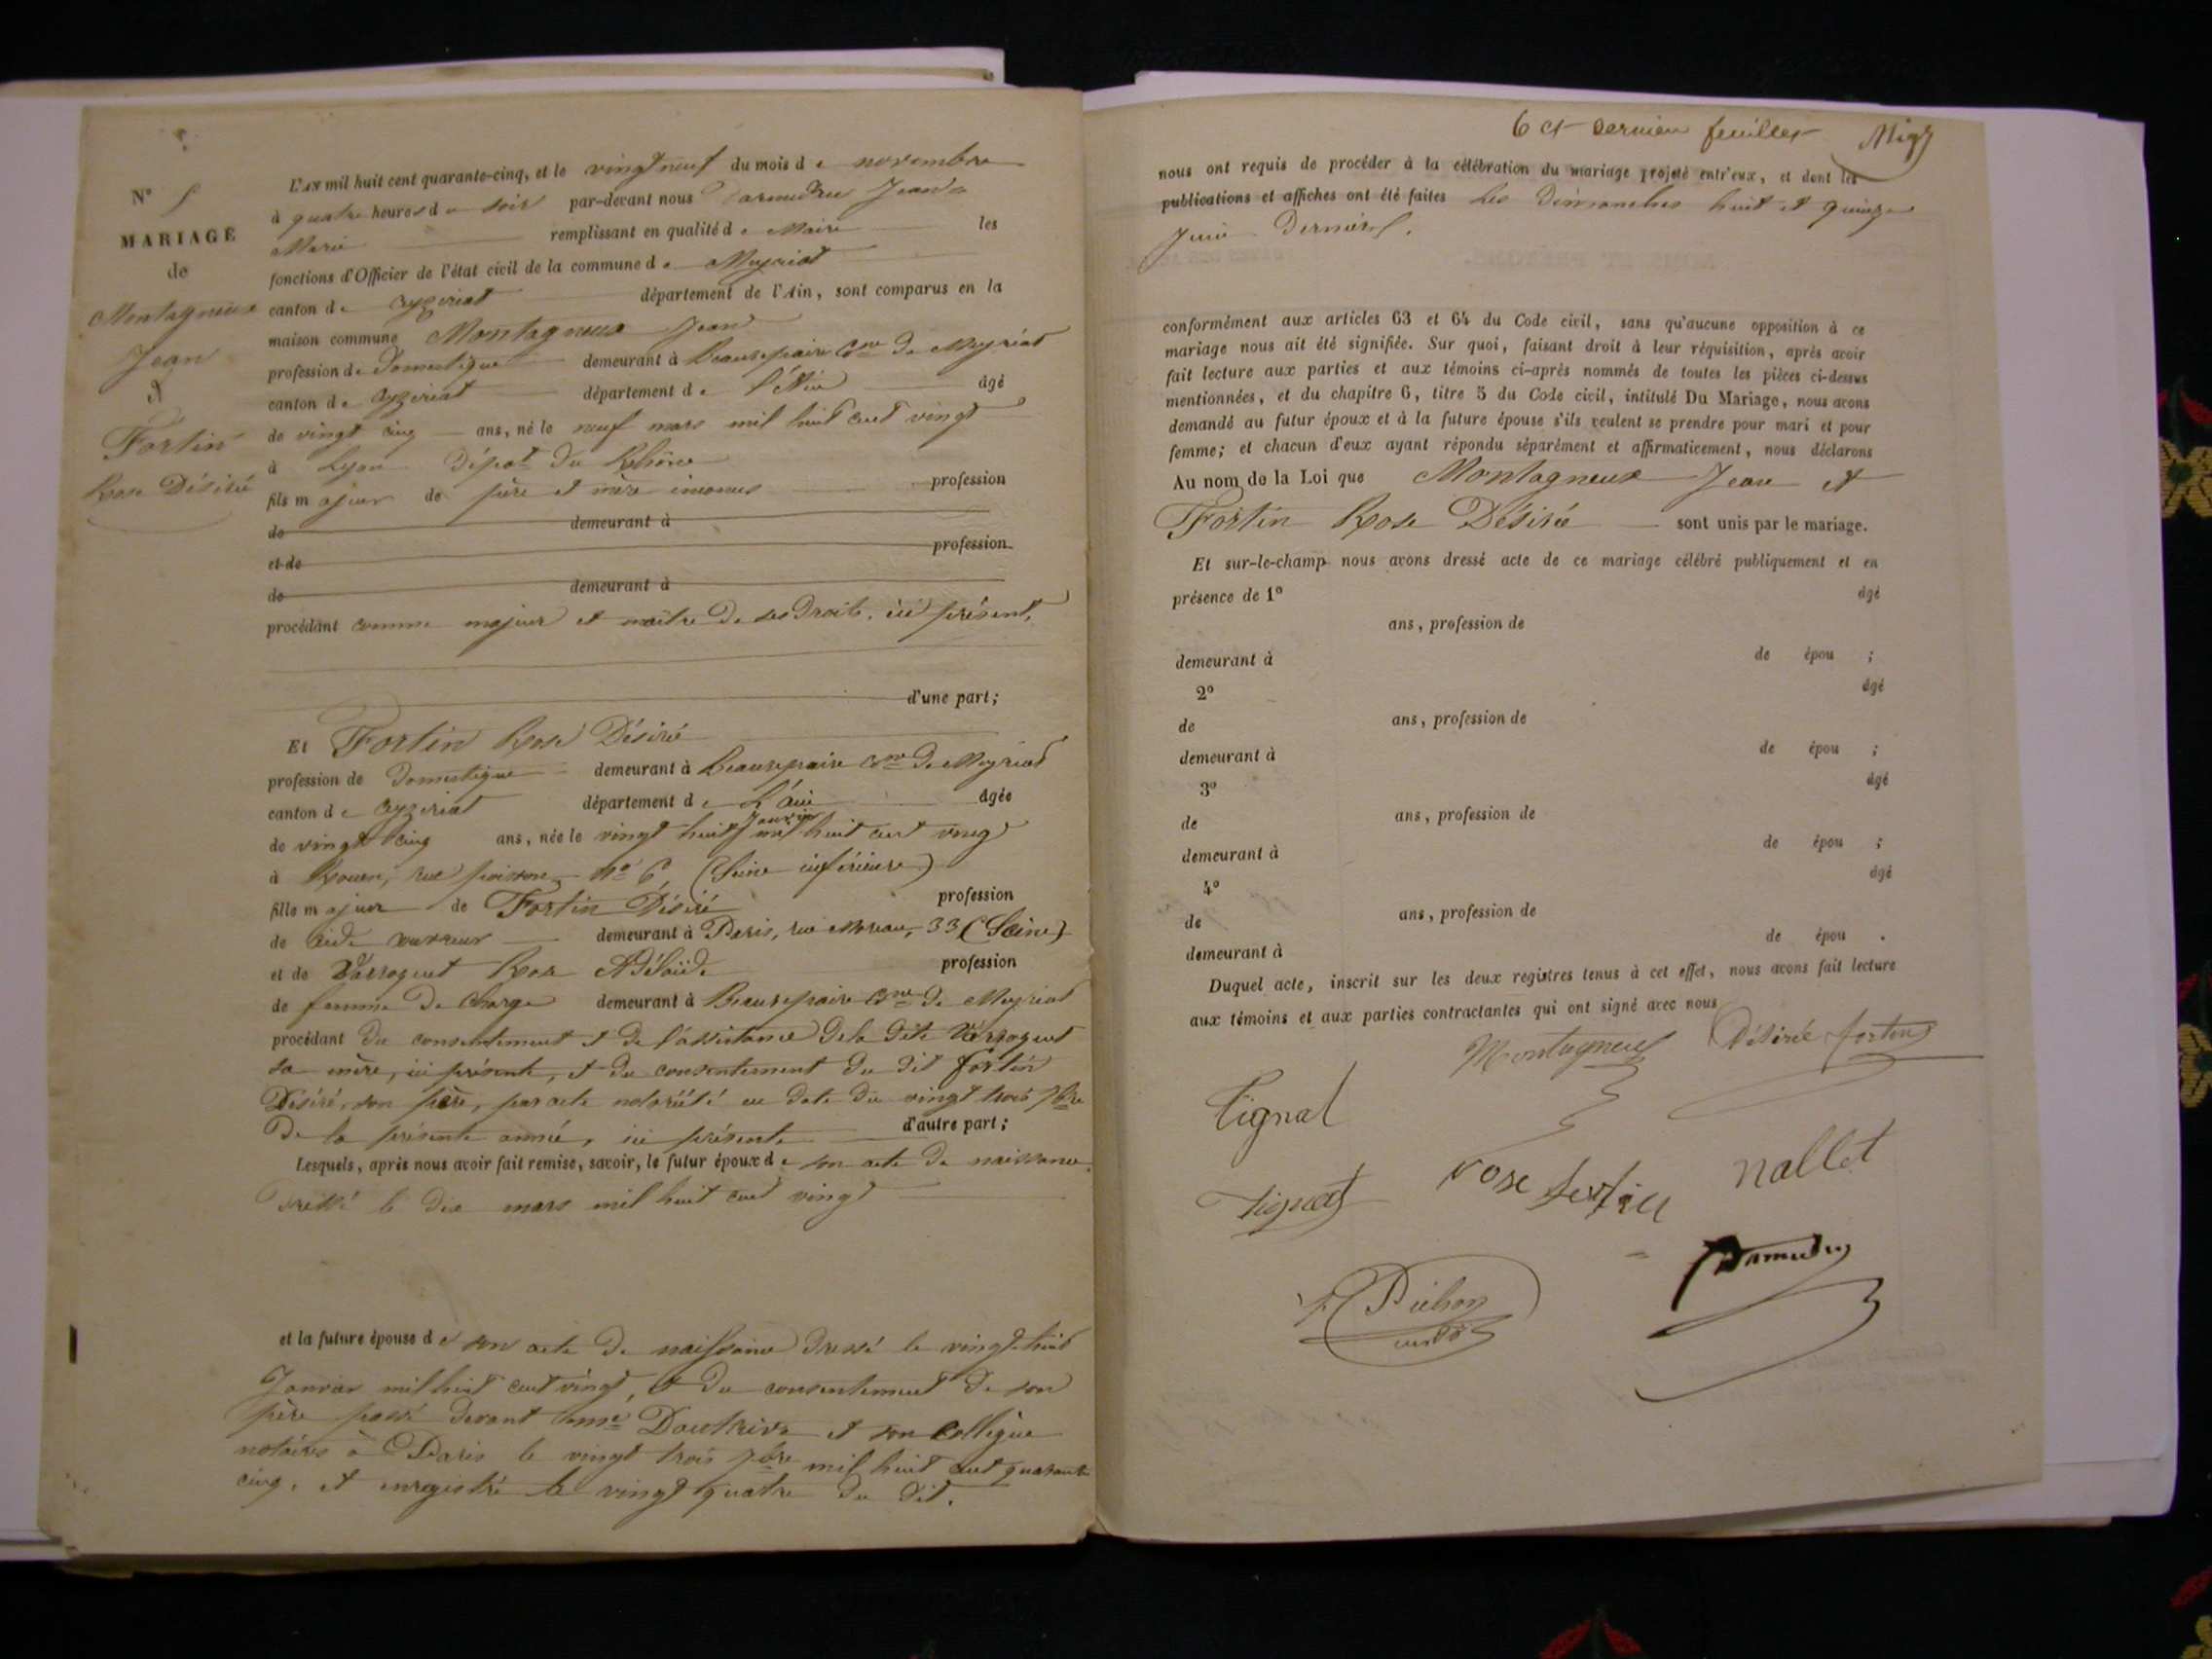 N° 5
MARIAGE
de
Montagneux
Jean
et
Fortin
Rose Désiré
L'AN mil huit cent quarante-cinq, et le vingt neuf du mois de novembre
à quatre heures du soir par-devant nous Jean
Marie remplissant en qualité de Maire les
fonctions d'Officier de l'état civil de la commune de Meyriat
canton de Ceyzeriat département de l'Ain, sont comparus en la
maison commune Montagneux Jean
profession de Domestique demeurant à Beaurepaire Cne de Meyriat
canton de Ceyzeriat département de l'Ain âgé
de vingt cinq ans, né le neuf mars mil huit cent vingt
à Lyon Dépat du Rhône
fils majeur de père et mère inconnus profession
de demeurant à
et de profession
de demeurant à
procédant comme majeur et maître de ses droits, ici présent,
d'une part;
Et Fortin Rose Désiré
profession de Domestique demeurant à Beaurepaire Cne de Meyriat
canton de Ceyzeriat département de L'ain âgée
de vingt cinq ans, née le vingt huit Janvier mil huit cent vingt
à Rouen, rue poisson n° 6 (Seine inférieure)
fille majeur de Fortin Désiré profession
de aide demeurant à Paris, rue Moreau, 33 (Seine)
et de Rose Adélaïde profession
de femme de charge demeurant à Beaurepaire Cne de Meyriat
procédant du consentement et de l'assistance de la dite
sa mère, ici présente, et du consentement du dit fortin
Désiré, son père, par acte notoriété en date du vingt trois 7bre
De la présente année, ici présente d'autre part;
Lesquels, après nous avoir fait remise, savoir, le futur époux de son acte de naissance
Dressé le dix mars mil huit cent vingt
et la future épouse de son acte de naissance dressé le vingt huit
Janvier mil huit cent vingt, et du consentement de son
père passé devant me et son collègue
notaires à Paris le vingt trois 7bre mil huit cent quarante
cinq, et enregistré le vingt quatre du dit.
6 et dernier feuillet
nous ont requis de procéder à la célébration du mariage projeté entr'eux, et dont les
publications et affiches ont été faites les Dimanches huit et quinze
Juin derniers.
conformément aux articles 63 et 64 du Code civil, sans qu'aucune opposition à ce
mariage nous ait été signifiée. Sur quoi, faisant droit à leur réquisition, après avoir
fait lecture aux parties et aux témoins ci-après nommés de toutes les pièces ci-dessus
mentionnées, et du chapitre 6, titre 5 du Code civil, intitulé Du Mariage, nous avons
demandé au futur époux et à la future épouse s'ils veulent se prendre pour mari et pour
femme; et chacun d'eux ayant répondu séparément et affirmativement, nous déclarons
Au nom de la Loi que Montagneux Jean et
Fortin Rose Désirée sont unis par le mariage.
Et sur-le-champ nous avons dressé acte de ce mariage célébré publiquement et en
présence de 1° âgé
ans, profession de
demeurant à de épou ;
2° âgé
de ans, profession de
demeurant à de épou ;
3° âgé
de ans, profession de
demeurant à de épou ;
4° âgé
de ans, profession de
demeurant à de épou .
Duquel acte, inscrit sur les deux registres tenus à cet effet, nous avons fait lecture
aux témoins et aux parties contractantes qui ont signé avec nous
Montagneux Désirée fortin
Tignat
rose fortin nallet
Pichon